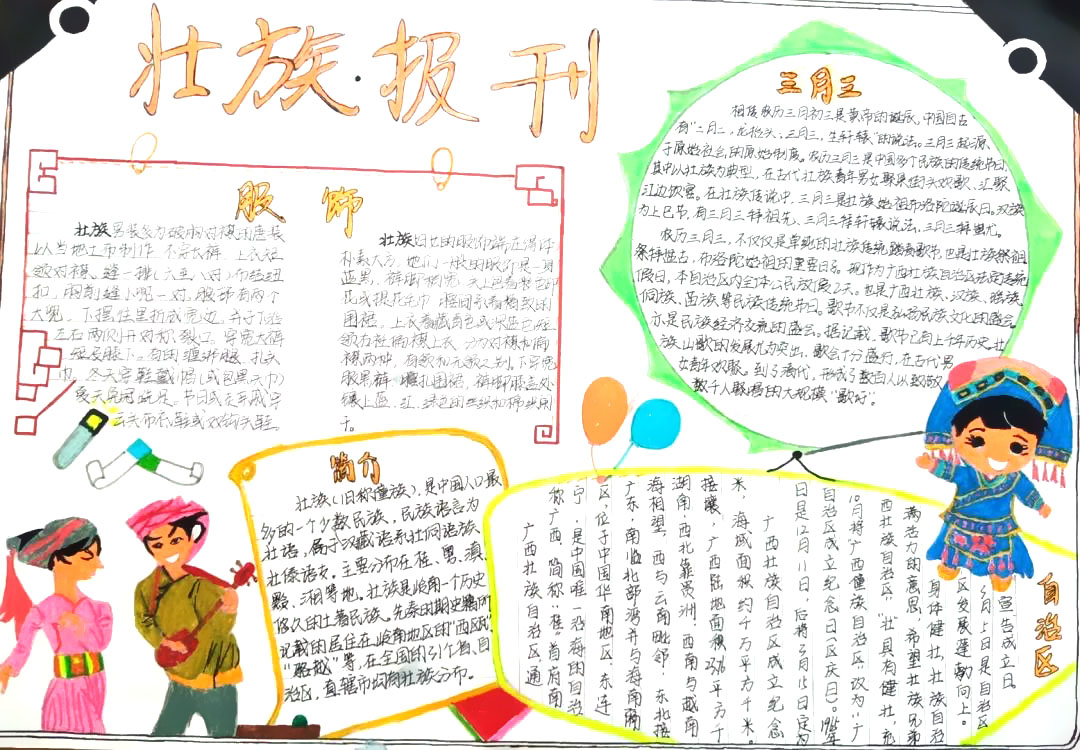 壮族·报刊
服饰
壮族男装多为破胸对襟的唐装
以当地土布制作,不穿长裤,上衣短
领对襟,缝一排(六至八对)布结纽
扣,胸前缝小兜一对,腹部有两个
大兜,下摆往里折成宽边,并于下沿
左右两侧开对称裂口。穿宽大裤
短及膝下。有的缠绑腿,扎头
巾。冬天穿鞋戴帽(或包黑头巾)
夏天免冠跣足。节日或走亲戚穿
云头布底鞋或双钩头鞋
壮族妇女的服饰端庄得体
朴素大方。她们一般的服饰是一身
蓝黑,裤脚稍宽,头上包着彩色印
花或提花毛巾,腰间系着精致的
围裙。上衣着藏青色或深蓝色短
领右衽偏襟上衣,分为对襟和偏
襟两种,有领和无领之别。下穿宽
肥黑裤,腰扎围裙,裤脚膝盖处
镶上蓝、红、绿色的丝织和棉织阑
干。
三月三
相传农历三月初三是黄帝的诞辰,中国自古
有"二月二,龙抬头;三月三,生轩辕"的说法。三月三起源
于原始社会的原始制度。农历三月三是中国多个民族的传统节日
其中以壮族为典型。在古代壮族青年男女聚集街头欢歌、汇聚
江边饮宴。在壮族传说中,三月三是壮族始祖布洛陀诞辰日。汉族
为上巳节,有三月三拜祖先,三月三拜轩辕说法,三月三拜蚩尤。
农历三月三,不仅仅是单纯的壮族传统踏青歌节,也是壮族祭祖
祭拜盘古、布洛陀始祖的重要日子。现作为广西壮族自治区法定传统
假日,本自治区内全体公民放假2天。也是广西壮族、汉族、瑶族、
侗族、苗族等民族传统节日。歌节不仅是弘扬民族文化的盛会
亦是民族经济交流的盛会。据记载,歌节已有上千年历史。壮
族山歌的发展尤为突出,歌会十分盛行,在古代男
女青年欢歌。到了清代,形成了数百人以致于
数千人聚唱的大规模"歌圩"。
简介
壮族(旧称僮族),是中国人口最
多的一个少数民族,民族语言为
壮语,属于汉藏语系壮侗语族
壮傣语支。主要分布在桂、粤、滇、
黔、湘等地。壮族是岭南一个历史
悠久的土著民族。先秦的期史籍所
记载的居住在岭南地区的"西瓯"
"骆越"等,在全国的31个省、自
治区,直辖市均有壮族分布。
自治区
广西壮族自治区,通
称广西,简称"桂"首府南
宁,是中国唯一沿海的自治
区,位于中国华南地区,东连
广东,南临北部湾并与海南隔
海相望,西与云南毗邻,东北接
湖南,西北靠贵州,西南与越南
接壤,广西陆地面积23.76平方千
米,海域面积约4千万平方千米。
广西壮族自治区成立纪念
日是12月11日,后将3月15日定为
自治区成立纪念日(区庆日)。1965年
10月将"广西僮族自治区"改为"广
西壮族自治区""壮"具有健壮,充
满活力的寓意,希望壮族兄弟
身体健壮,壮族自治
区发展蓬勃向上。
3月15日是自治区
宣告成立日。